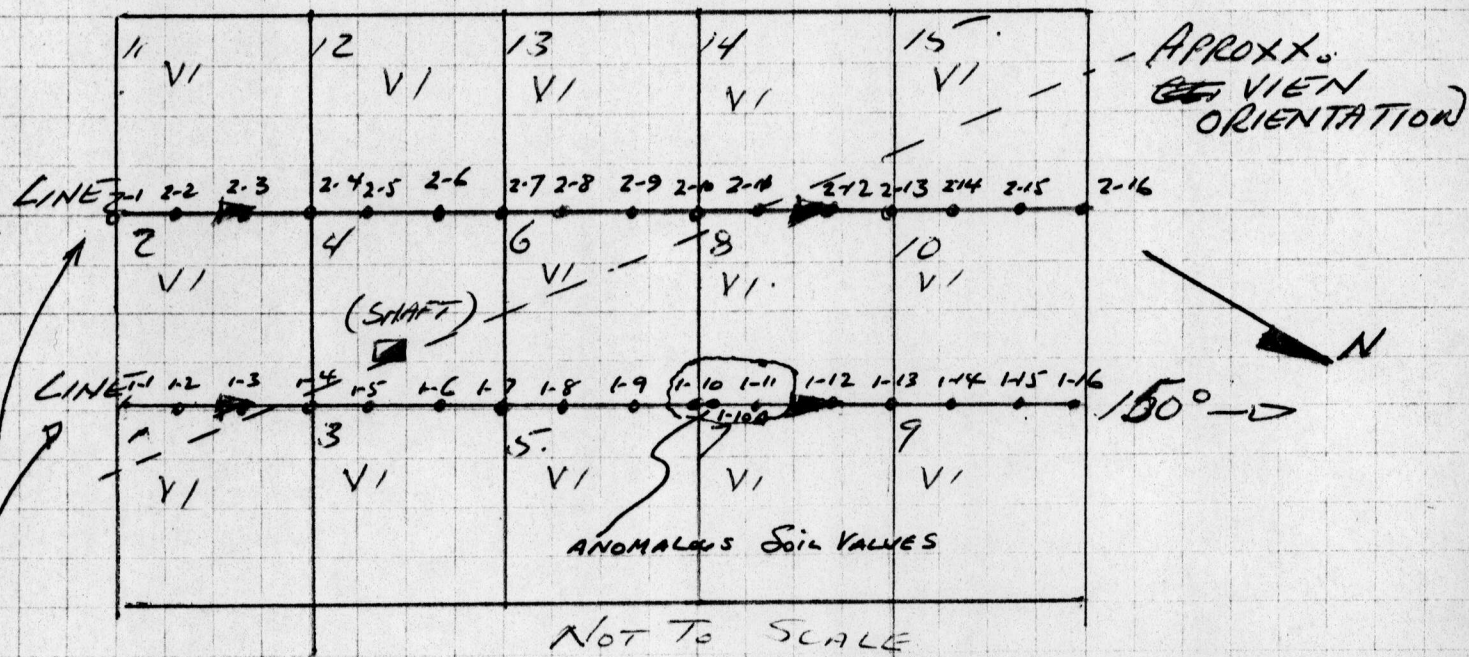 11 12 13 14 15
V1 V1 V1 V1 V1
APROXX.
VIEN
ORIENTATION
LINE 2-1 2-2 2-3 2-4 2-5 2-6 2-7 2-8 2-9 2-10 2-11 2-12 2-13 2-14 2-15 2-16
2 4 6 8 10
V1 V1 V1 V1
(SHAFT)
N
LINE 1-1 1-2 1-3 1-4 1-5 1-6 1-7 1-8 1-9 1-10 1-11 1-12 1-13 1-14 1-15 1-16
1-10A
150° →
1 3 5. 7 9
V1 V1 V1 V1 V1
ANOMALOUS Soil VALUES
NOT TO SCALE